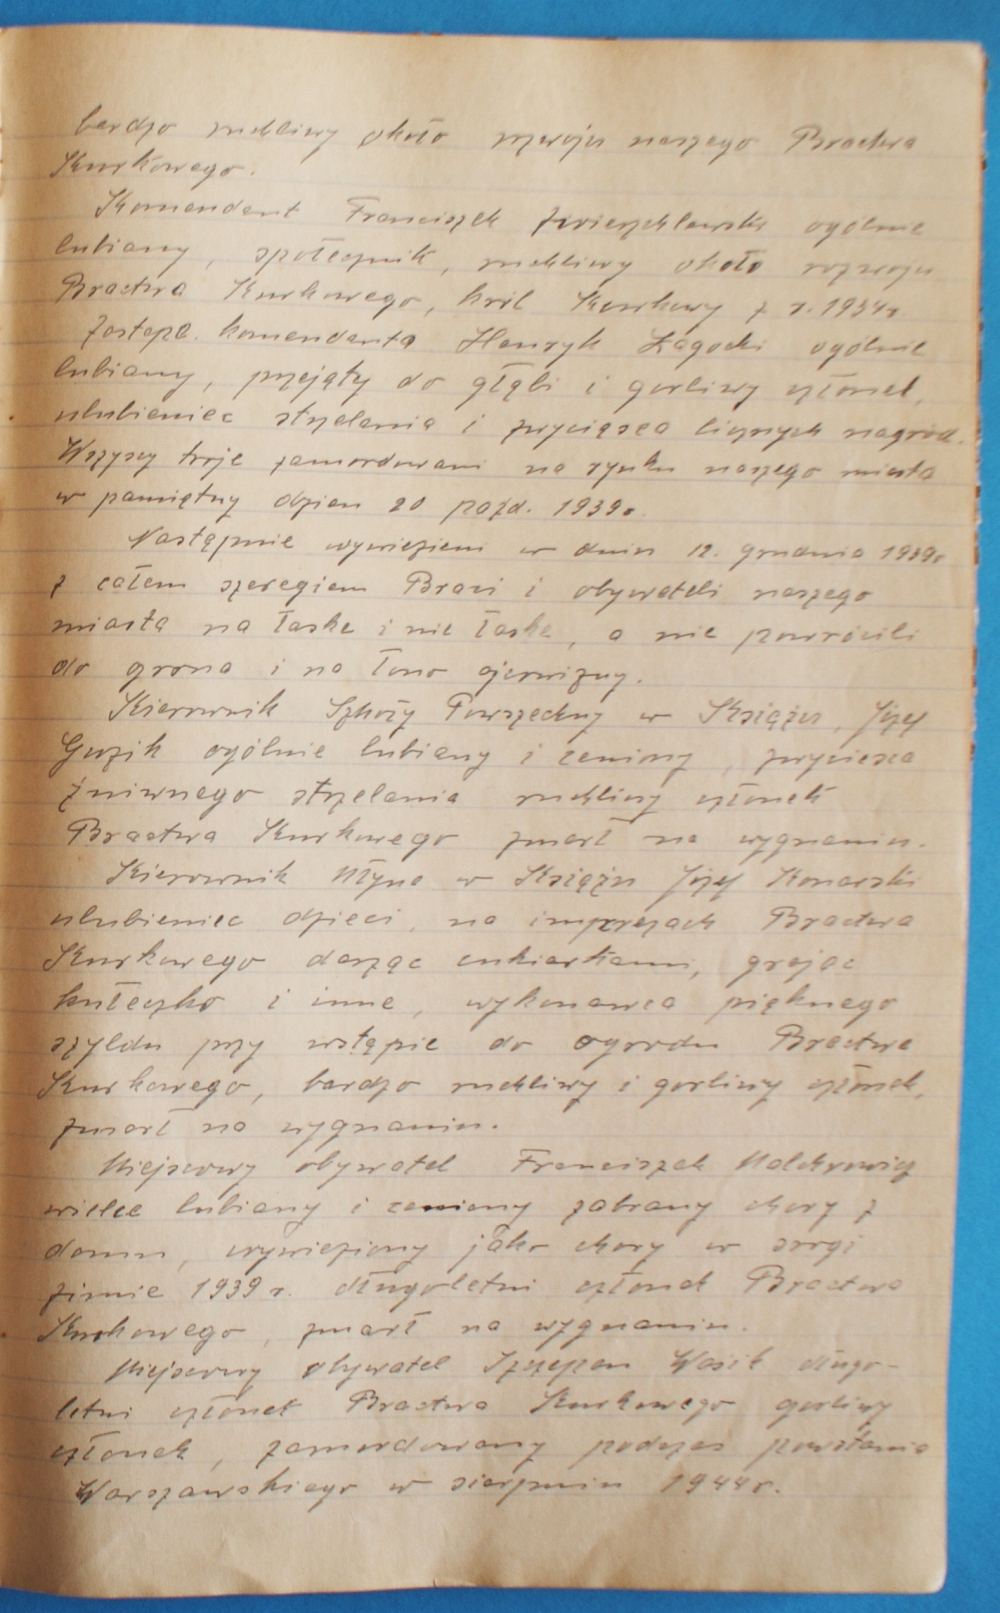 bardzo ruchliwy około rozwoju naszego Bractwa
Kurkowego.
Komendant Franciszek Zwierzchlewski ogólnie
lubiany, społecznik, ruchliwy około rozwoju
Bractwa Kurkowego, król Kurkowy z r. 1934r
Zastępc. komendanta Henryk Łagocki ogólnie
lubiany, przejąty do głąbi i gorliwy członek,
ulubieniec strzelania i zwyciąsca licznych nagród.
Wszyscy troje zamordowani na rynku naszego miasta
w pamiętny dzien 20 pazd. 1939r.
Następnie wywiezieni w dniu 12. grudnia 1939r
z całem szeregiem Braci i obywateli naszego
miasta na łaske i nie łaske, a nie powrócili
do grona i na łono ojcowizny.
Kierownik Szkoży Powszechny w Książu, Józef
Guzik ogólnie lubiany i ceniony, zwyciesca
żniwnego strzelania ruchliwy członek
Bractwa Kurkowego zmarł na wygnaniu.
Kierownik Młyna w Książu Józef Konarski
ulubieniec dzieci, na imprezach Bractwa
Kurkowego dasząc cukierkami, grając
kułeczko i inne, wykonawca pięknego
szyldu przy wstąpie do ogrodu Bractwa
Kurkowego, bardzo ruchliwy i gorliwy członek,
zmarł na wygnaniu.
Miejscowy obywatel Franciszek
wielce lubiany i ceniony zabrany chory z
domu, wywieziony jako chory w srogi
zimie 1939 r. długoletni członek Bractwa
Kurkowego, zmarł na wygnaniu.
Miejscowy obywatel Szczepan Wosik długo-
letni członek Bractwa Kurkowego gorliwy
członek, zamordowany podczas powstania
Warszawskiego w sierpniu 1944r.